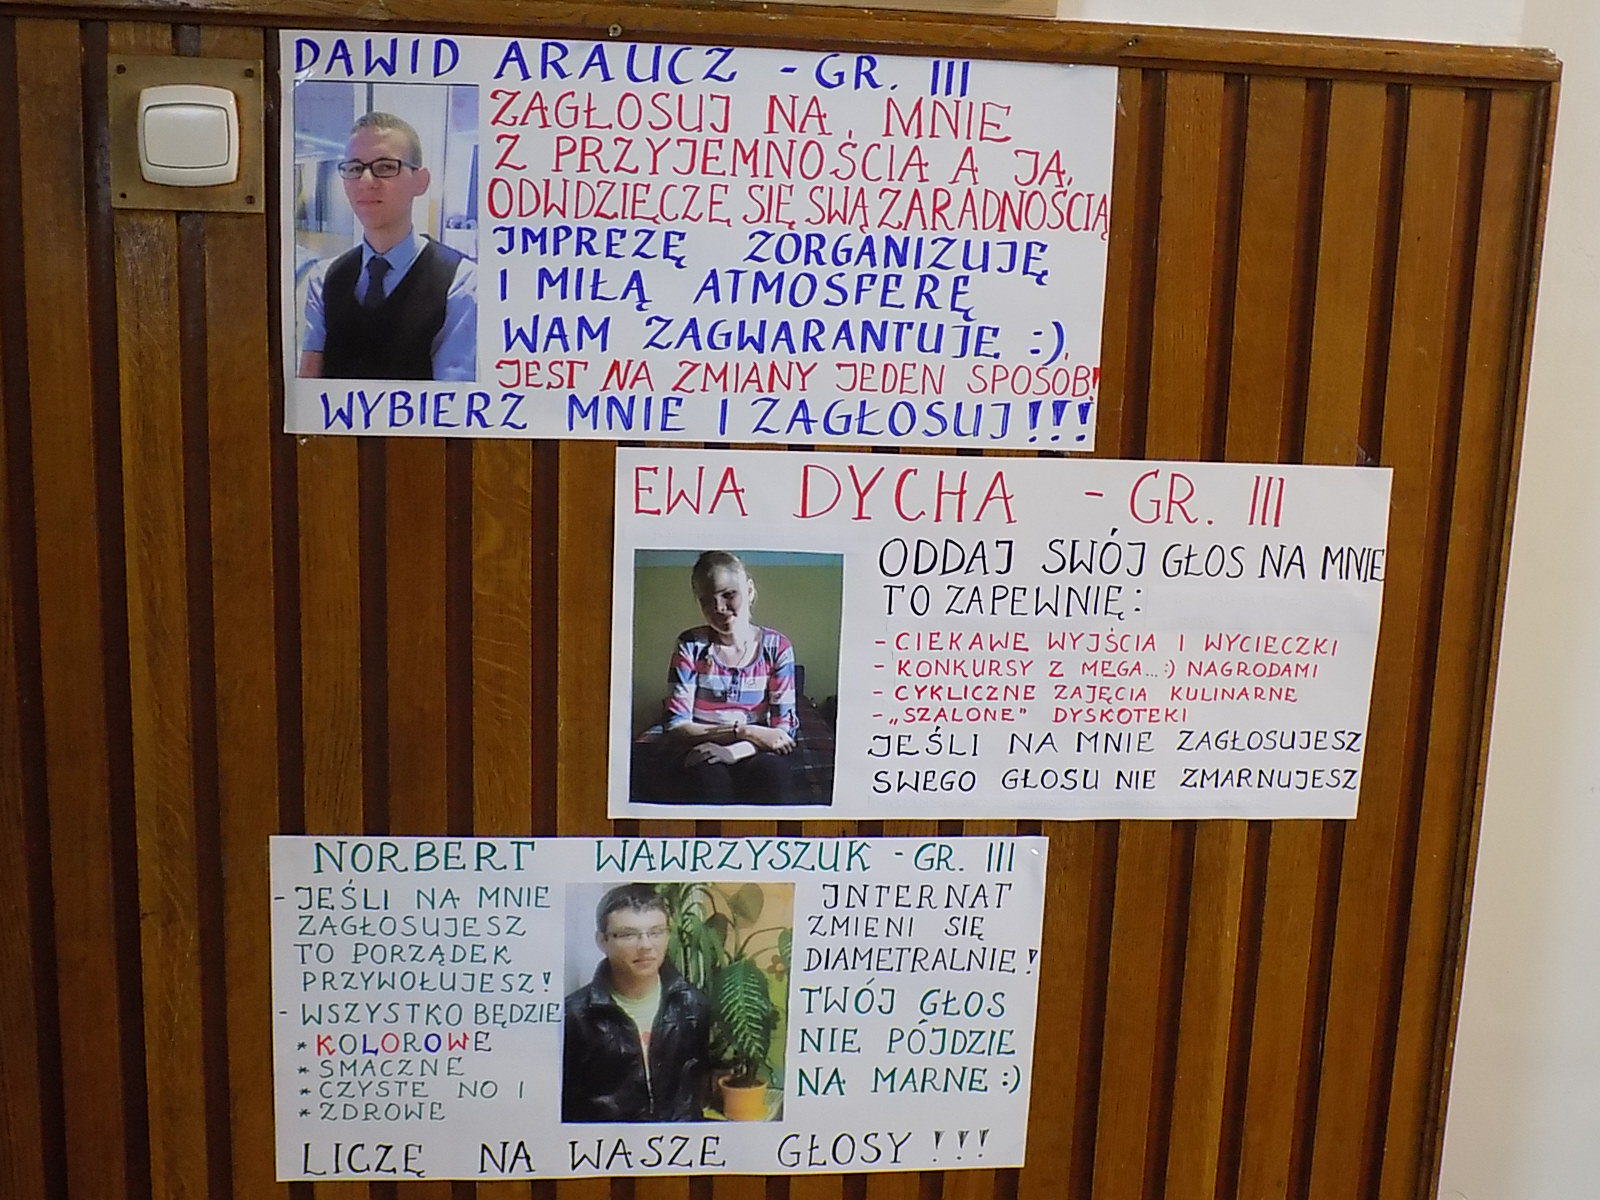 DAWID ARAUCZ - GR. III
ZAGŁOSUJ NA MNIE
Z PRZYJEMNOŚCIA A JA,
ODWDZIĘCZĘ SIĘ SWĄ ZARADNOŚCIĄ
IMPREZĘ ZORGANIZUJĘ
I MIŁĄ ATMOSFERĘ
WAM ZAGWARANTUJĘ :)
JEST NA ZMIANY JEDEN SPOSÓB!
WYBIERZ MNIE I ZAGŁOSUJ!!!
EWA DYCHA - GR. III
ODDAJ SWÓJ GŁOS NA MNIE
TO ZAPEWNIĘ:
- CIEKAWE WYJŚCIA I WYCIECZKI
- KONKURSY Z MEGA...:) NAGRODAMI
- CYKLICZNE ZAJĘCIA KULINARNE
- „SZALONE” DYSKOTEKI
JEŚLI NA MNIE ZAGŁOSUJESZ
SWEGO GŁOSU NIE ZMARNUJESZ
NORBERT WAWRZYSZUK - GR. III
- JEŚLI NA MNIE
ZAGŁOSUJESZ
TO PORZĄDEK
PRZYWOŁUJESZ!
- WSZYSTKO BĘDZIE
* KOLOROWE
* SMACZNE
* CZYSTE NO I
* ZDROWE
INTERNAT
ZMIENI SIĘ
DIAMETRALNIE!
TWÓJ GŁOS
NIE PÓJDZIE
NA MARNE :)
LICZĘ NA WASZE GŁOSY!!!